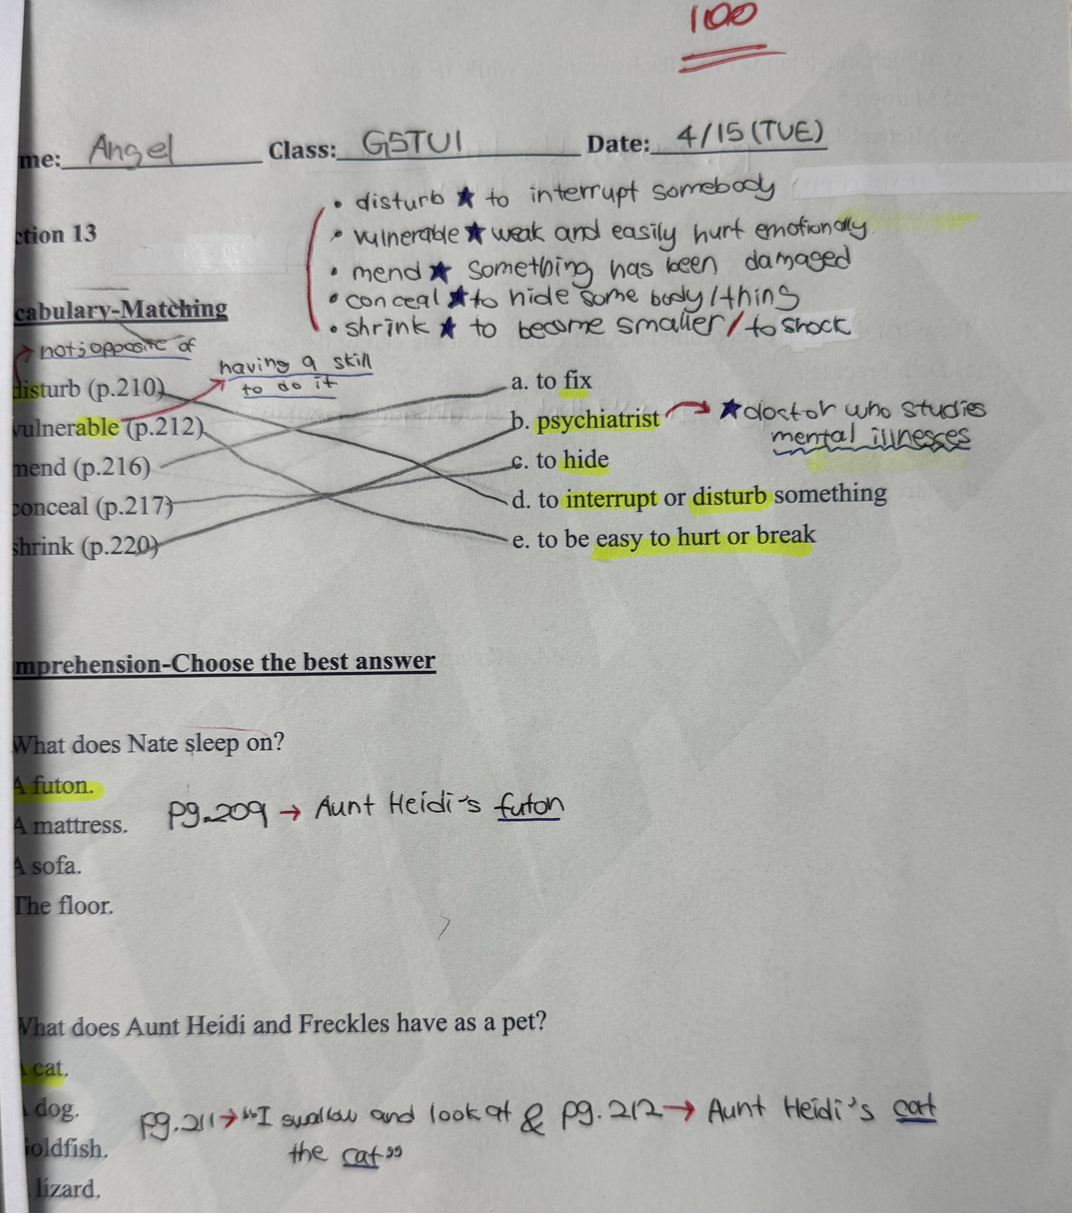 100
me: Angel Class: G5TU1 Date: 4/15 (TUE)
• disturb ★ to interrupt somebody
ction 13
• vulnerable ★ weak and easily hurt emotionally
• mend ★ something has been damaged
• conceal ★ to hide some body/thing
cabulary-Matching
• shrink ★ to become smaller / to shock
not; opposite of
having a skill
to do it
disturb (p.210) a. to fix
vulnerable (p.212) b. psychiatrist → ★ doctor who studies
mental illnesses
mend (p.216) c. to hide
conceal (p.217) d. to interrupt or disturb something
shrink (p.220) e. to be easy to hurt or break
mprehension-Choose the best answer
What does Nate sleep on?
A futon.
pg.209 → Aunt Heidi's futon
A mattress.
A sofa.
The floor.
What does Aunt Heidi and Freckles have as a pet?
cat.
dog.
pg.211 → "I swallow and look at & pg.212 → Aunt Heidi's cat
the cat"
oldfish.
lizard.